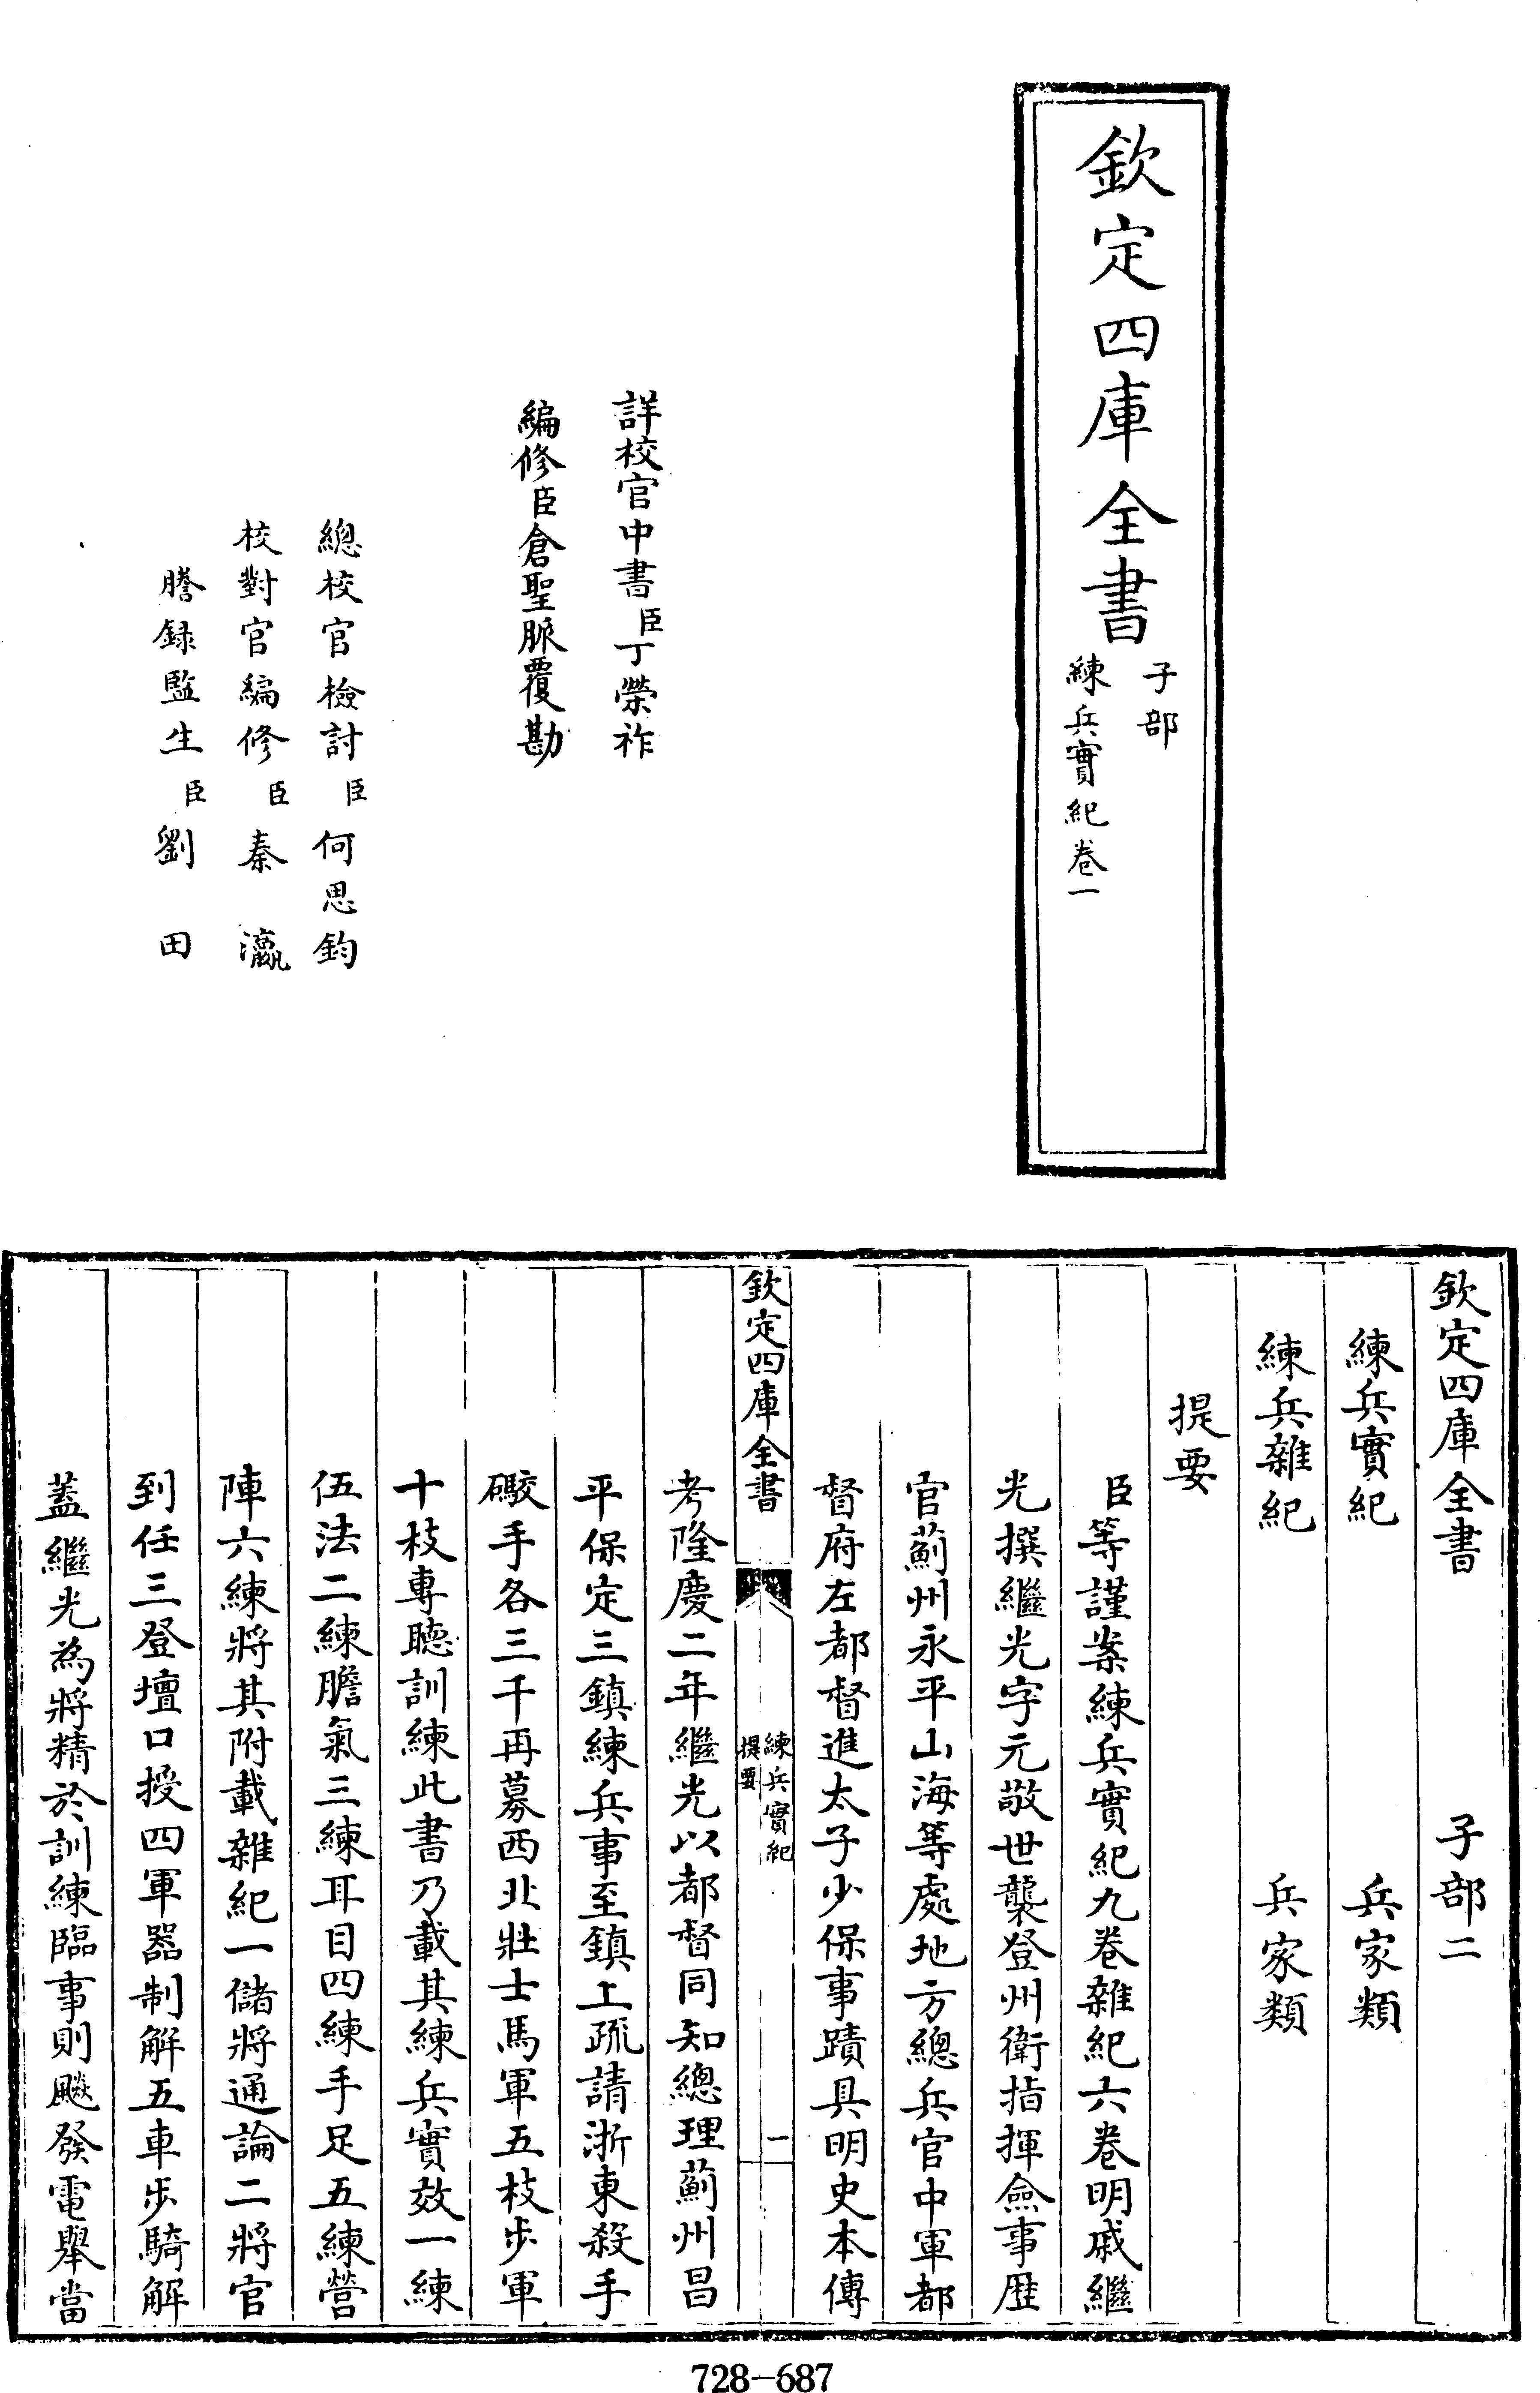 欽定四庫全書
子部
練兵實紀卷一
詳校官中書臣丁榮祚
編修臣倉聖脈覆勘
總校官檢討臣何思鈞
校對官編修臣秦瀛
謄録監生臣劉田
欽定四庫全書 子部二
練兵實紀 兵家類
練兵雜紀 兵家類
提要
臣等謹案練兵實紀九卷雜紀六卷明戚繼
光撰繼光字元敬世襲登州衛指揮僉事歴
官薊州永平山海等處地方總兵官中軍都
督府左都督進太子少保事蹟具明史本傳
欽定四庫全書
練兵實紀
提要
一
考隆慶二年繼光以都督同知總理薊州昌
平保定三鎮練兵事至鎮上疏請浙東殺手
礮手各三千再募西北壯士馬軍五枝步軍
十枝專聴訓練此書乃載其練兵實效一練
伍法二練膽氣三練耳目四練手足五練營
陣六練將其附載雜紀一儲將通論二將官
到任三登壇口授四軍器制解五車步騎解
蓋繼光為將精於訓練臨事則飈發電舉當
728-687